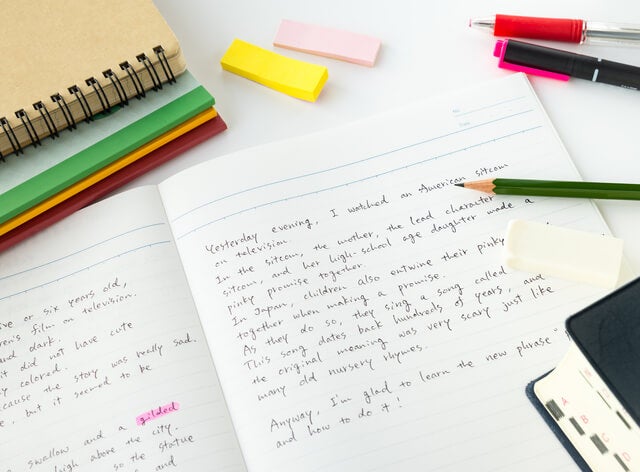 or six years old,
film on television.
and dark.
it did not have cute
colored.
the story was really sad.
, but it seemed to be
swallow and a gilded
high above the city.
so the statue
and
No.
Date
Yesterday evening, I watched an American sitcom
on television.
In the sitcom, the mother, the lead character
sitcom, and her high-school age daughter made a
pinky promise together.
In Japan, children also entwine their pinky
together when making a promise.
As they do so, they sing a song called
This song dates back hundreds of years, and
the original meaning was very scary just like
many old nursery rhymes.
Anyway, I'm glad to learn the new phrase "
and how to do it!
A
B
C
D